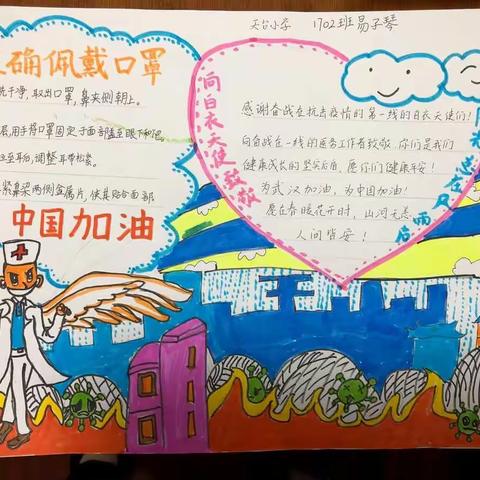 天台小学 1702班易子琴
正确佩戴口罩
洗干净,取出口罩,鼻夹侧朝上。
层,用手将口罩固定于面部盖至眼下和
拉至耳后,调整耳带松紧。
紧鼻梁两侧金属片,使其贴合面部
中国加油
向白衣天使致敬
感谢奋战在抗击疫情的第一线的白衣天使们!
向奋战在一线的医务工作者致敬,你们是我们
健康成长的坚实后盾,愿你们健康平安!
为武汉加油,为中国加油!
愿春暖花开时,山河无恙,
人间皆安!
总在风雨后